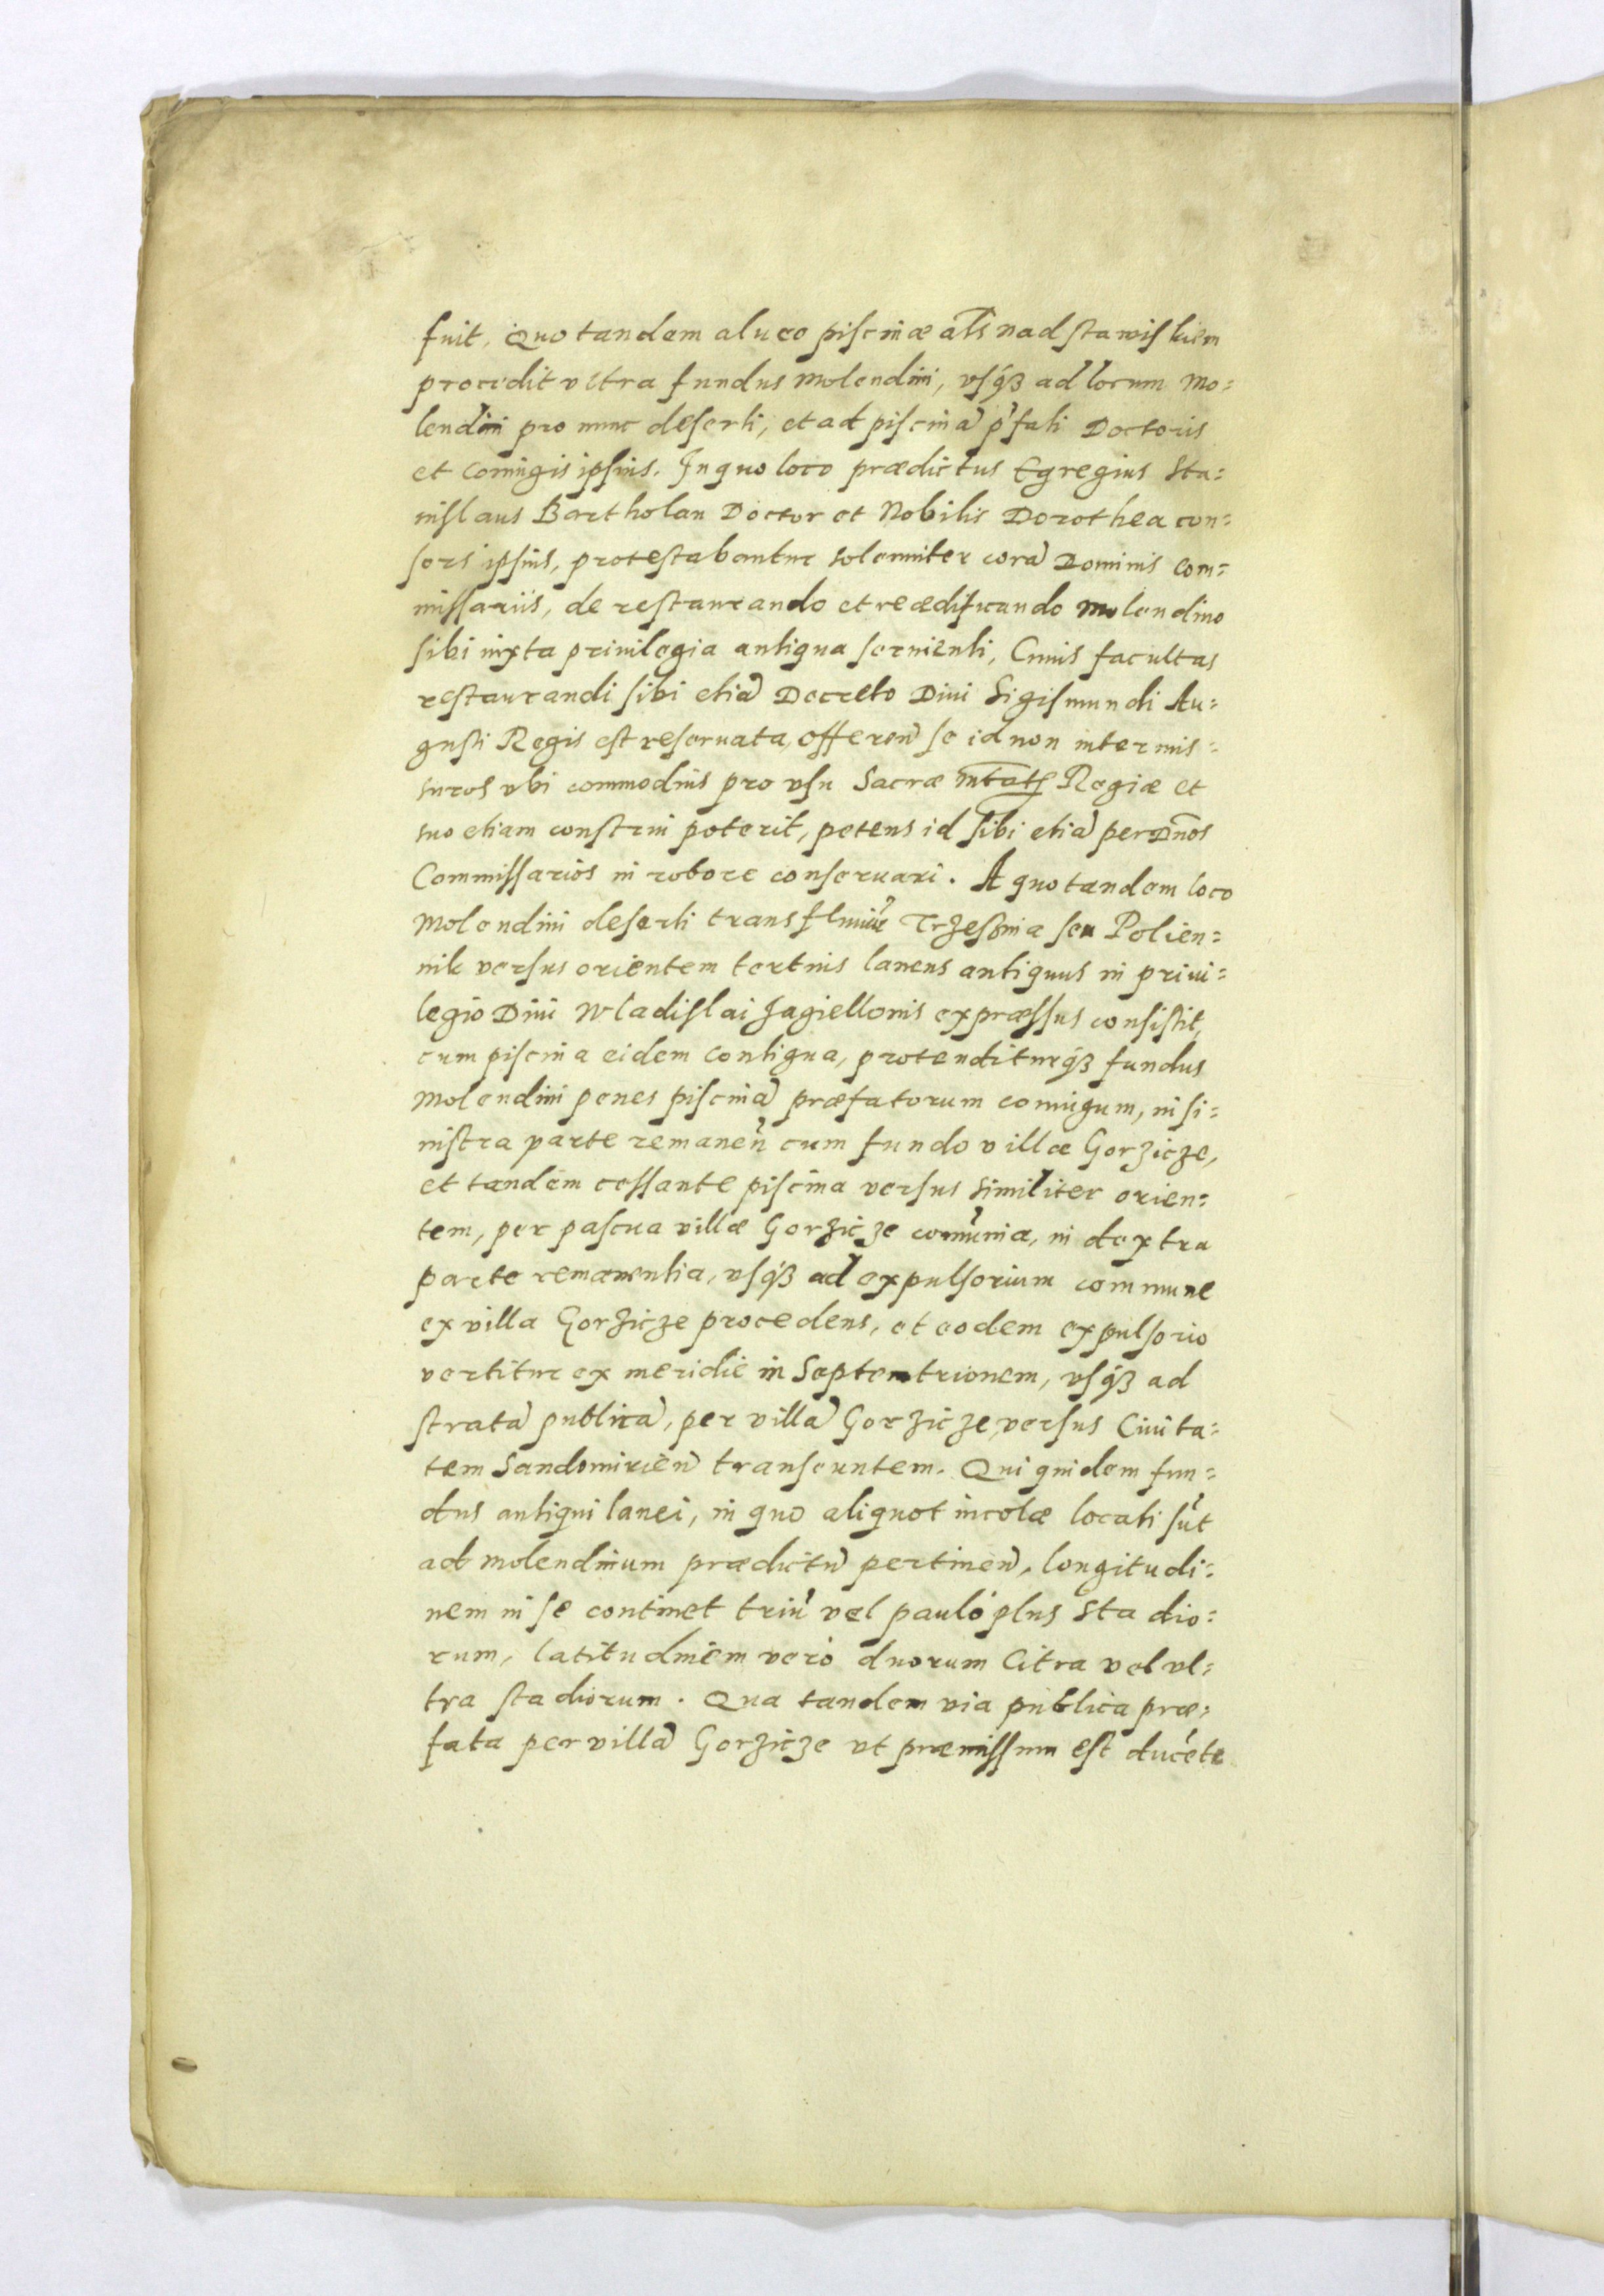 fuit, Quo tandem alueo piscinæ al̃s nad stawiskiem
procedit vltra fundus molendini, vsq́ʒ ad locum Mo:
lendini pro nunc deserti, et ad piscinã p̃fati Doctoris
et Coniugis ipsius. In quo loco prædictus Egregius Sta:
nislaus Bartholan Doctor et Nobilis Dorothea con:
sors ipsius, protestabantur solenniter corã Dominis Com:
missariis, de restaurando et reædificando molendino
sibi iuxta priuilegia antiqua seruienti, Cuius facultas
restaurandi sibi etiã Decreto Diui Sigismundi Au:
gusti Regis est reseruata, offereñ se id non intermis:
suros vbi commodius pro vsu Sacræ Mtatis Regiæ et
suo etiam construi poterit, petens id sibi etiã per Dños
Commissarios in robore conseruari. A quo tandem loco
Molendini deserti trans fluuiũ Trzesnia seu Polien:
nik versus orientem tertius laneus antiquus in priui:
legio Diui Wladislai Jagiellonis expræssus consistit,
cum piscina eidem contigua, protenditurq́ʒ fundus
Molendini penes piscinã præfatorum coniugum, in si:
nistra parte remaneñ cum fundo villæ Gorzicze,
et tandem cessante piscina versus similiter orien:
tem, per pascua villæ Gorzicze com̃unia, in dextra
parte remanentia, vsq́ʒ ad expulsorium commune
ex villa Gorzicze procedens, et eodem expulsorio
vertitur ex meridie in Septemtrionem, vsq́ʒ ad
stratã publicã, per villã Gorzicze, versus Ciuita:
tem Sandomirieñ transeuntem. Qui quidem fun:
dus antiqui lanei, in quo aliquot incolæ locati sũt
ad molendinum prædictũ pertineñ, longitudi:
nem in se continet triũ vel pauló plus Sta dio:
rum, latitudinem veró duorum Citra vel vl:
tra stadiorum. Qua tandem via publica præ:
fata per villã Gorzicze vt præmissum est ducẽte